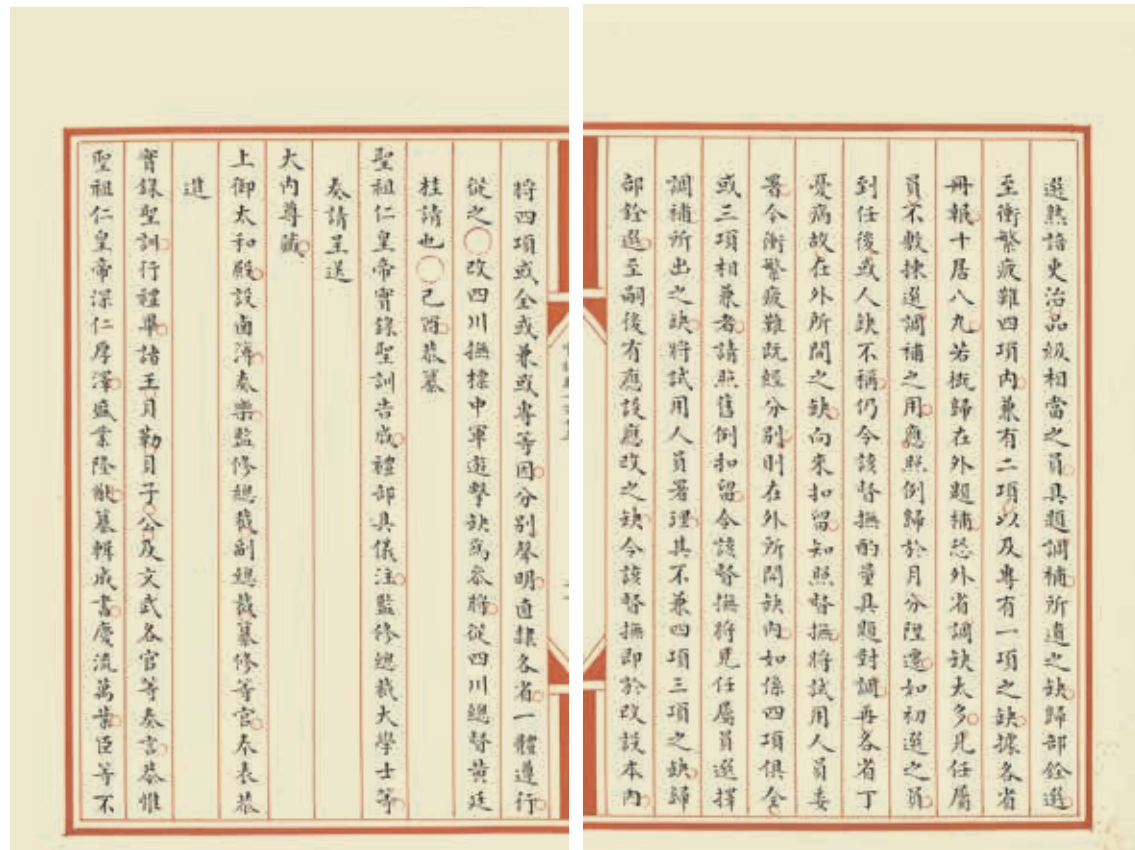 選熟諳吏治品級相當之員具題調補所遺之缺歸部銓選
至衝繁疲難四項內兼有二項以及專有一項之缺據各省
冊報十居八九若概歸在外題補恐外省調缺太多見任屬
員不敷揀選調補之用應照例歸於月分陞遷如初選之員
到任後或人缺不稱仍令該督撫酌量具題對調再各省丁
憂病故在外所開之缺向來扣留知照督撫將試用人員委
署今衝繁疲難既經分別則在外所開缺內如係四項俱全
或三項相兼者請照舊例扣留令該督撫將見任屬員選擇
調補所出之缺將試用人員署理其不兼四項三項之缺歸
部銓選至嗣後有應設應改之缺令該督撫即於改設本內
將四項或全或兼或專等因分別聲明直隸各省一體遵行
從之○改四川撫標中軍遊擊缺為參將從四川總督黃廷
桂請也○己酉恭纂
聖祖仁皇帝實錄聖訓告成禮部具儀注監修總裁大學士等
奏請呈送
大內尊藏
上御太和殿設鹵簿奏樂監修總裁副總裁纂修等官奉表恭
進
實錄聖訓行禮畢諸王貝勒貝子公及文武各官等奏言恭惟
聖祖仁皇帝深仁厚澤盛業隆猷纂輯成書慶流萬葉臣等不